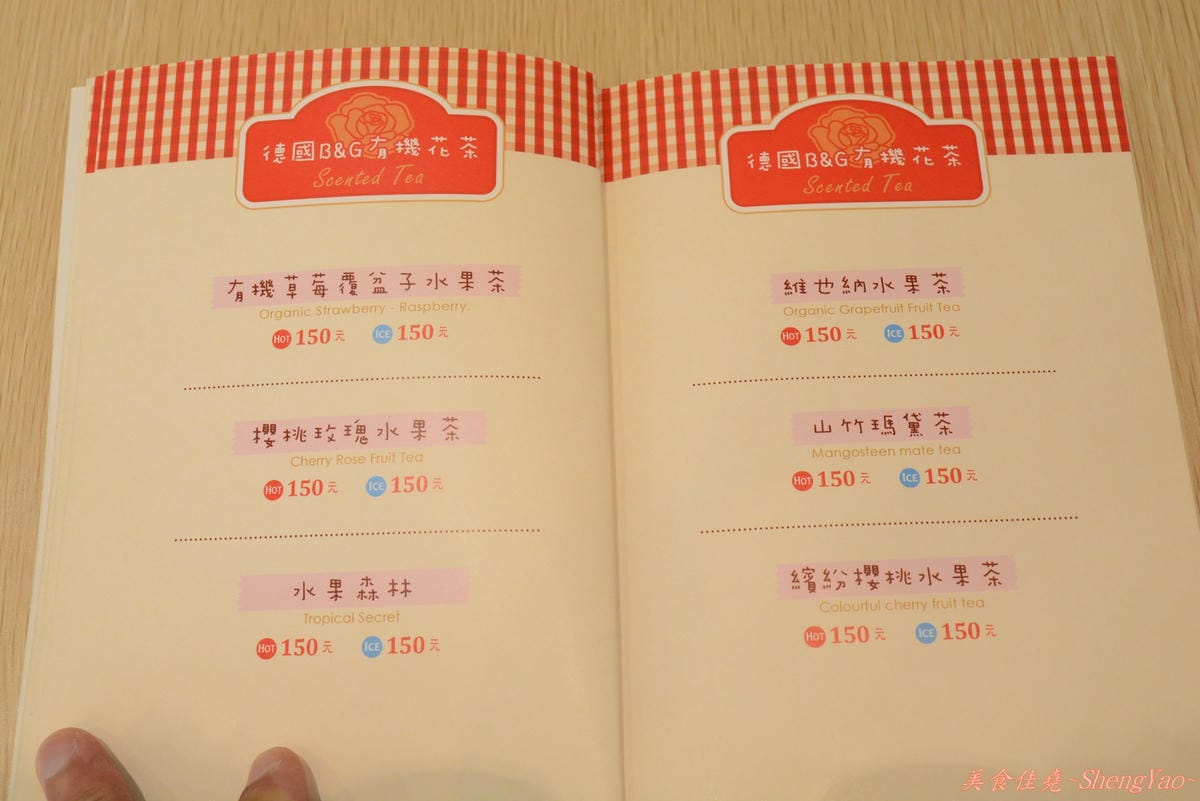 德國B&G有機花茶
Scented Tea
有機草莓覆盆子水果茶
Organic Strawberry - Raspberry.
HOT 150元 ICE 150元
櫻桃玫瑰水果茶
Cherry Rose Fruit Tea
HOT 150元 ICE 150元
水果森林
Tropical Secret
HOT 150元 ICE 150元
德國B&G有機花茶
Scented Tea
維也納水果茶
Organic Grapefruit Fruit Tea
HOT 150元 ICE 150元
山竹瑪黛茶
Mangosteen mate tea
HOT 150元 ICE 150元
繽紛櫻桃水果茶
Colourful cherry fruit tea
HOT 150元 ICE 150元
美食佳堯~ShengYao~